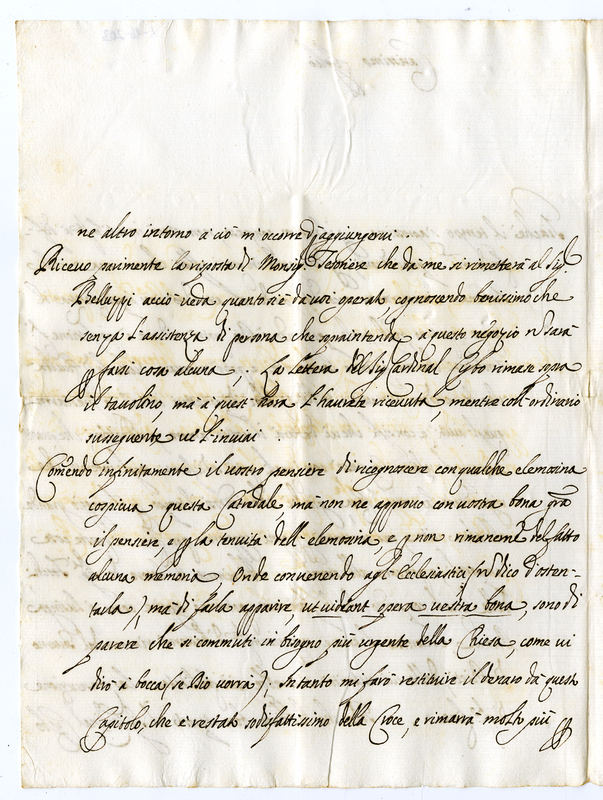 ne altro intorno à ciò m'occorre d'aggiungervi.
Ricevo parimente la risposta di Monsig.r Tesoriere che da me si rimetterà al Sig.r
Belluzzi acciò veda quanto s'è da voi operato, cognoscendo benissimo che
senza l'assistenza di persona che sopraintenda à questo negozio nō sarà
p farsi cosa alcuna. La lettera del Sig.r Cardinal Cybo rimase sopra
il tavolino, mà à quest'hora l'haurete ricevuta, mentre coll'ordinario
susseguente ve l'inviai.
Com̄endo infinitamente il vostro pensiere di ricognoscere con qualche elemosina
cospicua questa Catedrale, mà non ne approvo con vostra bona grā
il pensiere, e p la tenuità dell'elemosina e p non rimanerne del fatto
alcuna memoria. Onde convenendo agl'Ecclesiastici (nō dico d'osten-
tarla), mà di farla apparire, ut videant opera vestra bona, sono di
parere che si commuti in bisogno più urgente della Chiesa, come vi
dirò à bocca (se Dio vorrà); Intanto mi farò restituire il denaro da questo
Capitolo, che è restato sodisfattissimo della Croce, e rimarrà molto più